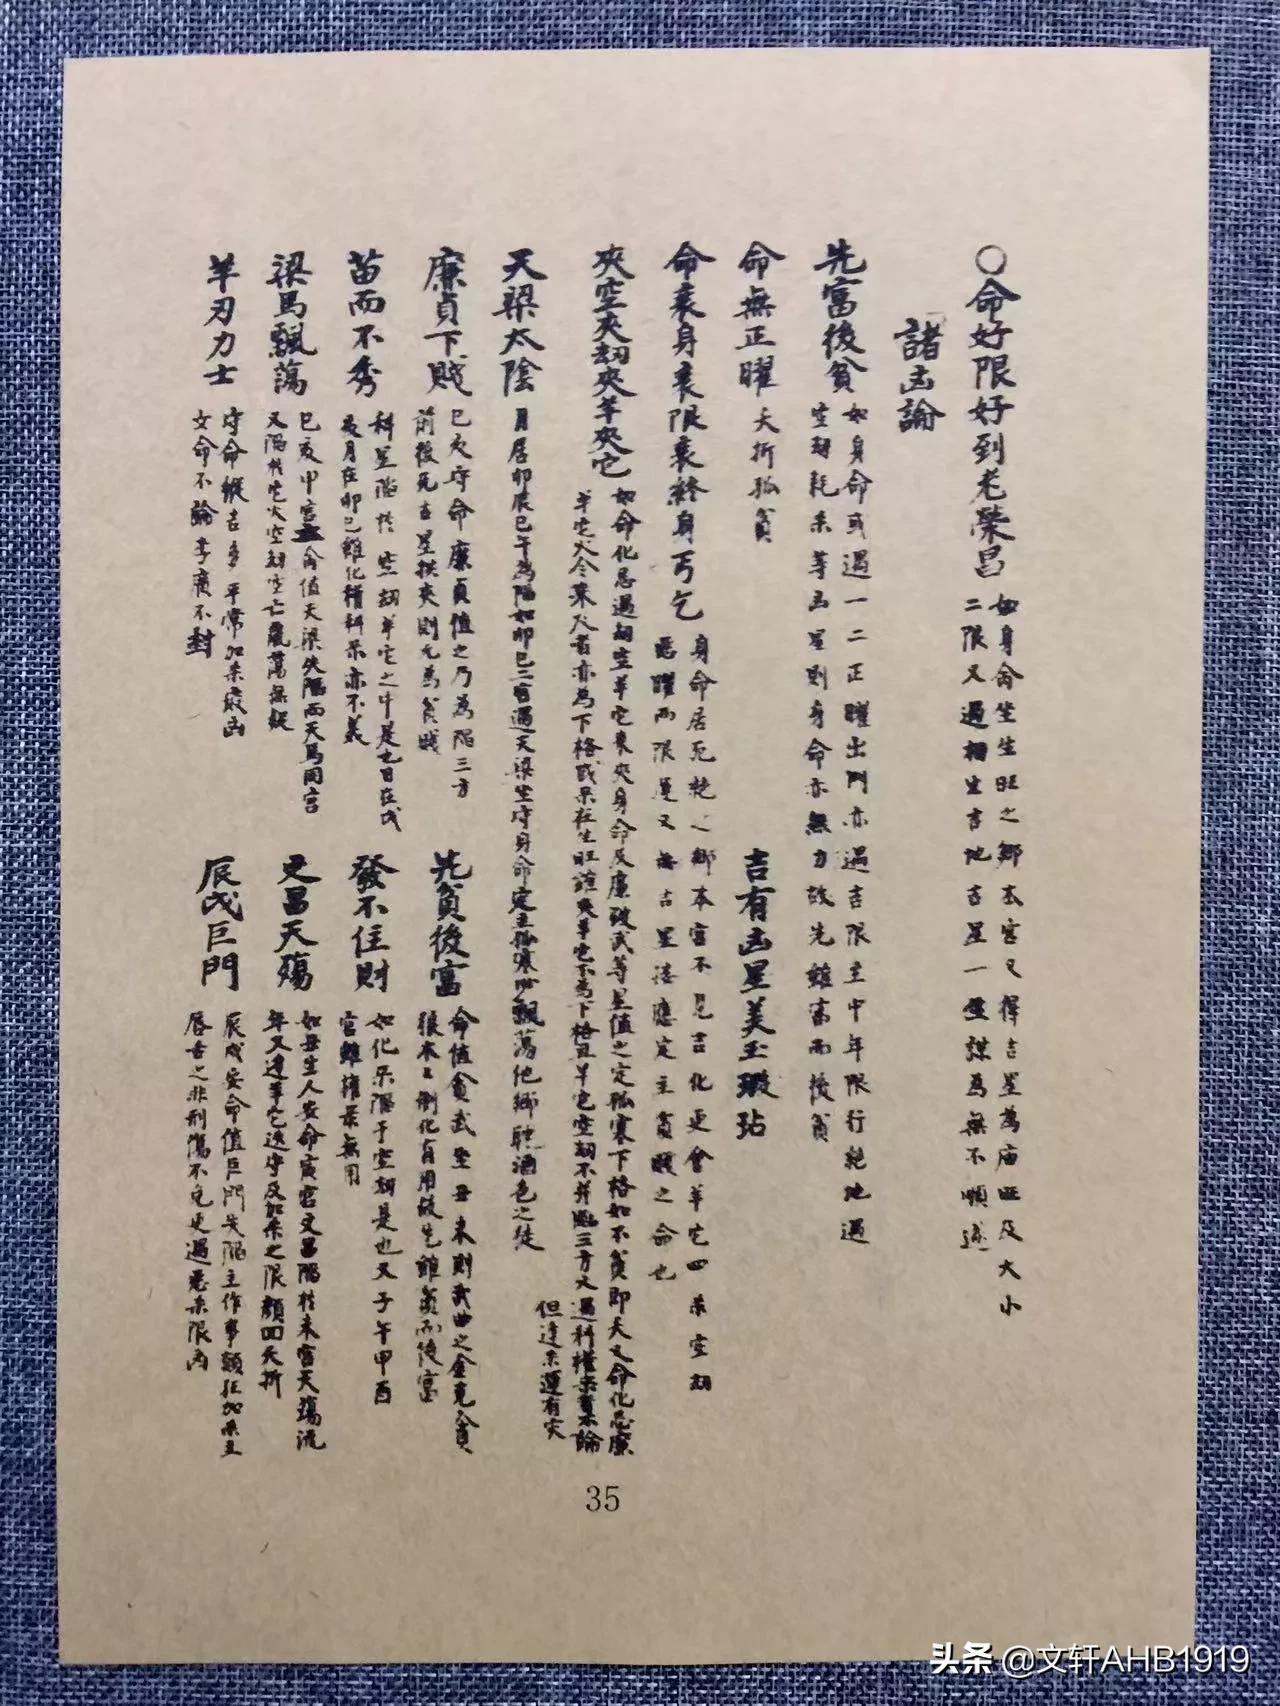 ○命好限好到老榮昌
如身命坐生旺之鄉本宮又得吉星為庙旺及大小
二限又遇相生吉地吉星一生謀為無不順遂
諸凶論
先富後貧
如身命或遇一二正曜出門亦遇吉限主中年限行絕地遇
空刧耗杀等凶星則身命亦無力故先雖富而後貧
命無正曜
夭折孤貧
吉有凶星美玉瑕玷
命衰身衰限衰終身丐乞
身命居死絕之鄉本宮不見吉化更會羊它四杀空刧
惡曜两限運又無吉星接應定主貧賤之命也
夾空夾刧夾羊夾它
如命化忌遇刧空羊它來夾身命及廉破武等星值之定孤寒下格如不貧即夭又命化忌廉
羊它火令來及者亦為下格或杀在生旺誰夾羊它不為下格且羊它空刧不並臨三方又遇科權祿業論
但逢杀運有灾
天梁太陰
月居卯辰巳午為陷如卯巳二宮遇天梁坐守身命定主孤寒必飄蕩他鄉耽酒色之徒
廉貞下賤
巳亥守命廉貞值之乃為陷三方
前後死吉星拱夾則尤為貧賤
先貧後富
命值貪武坐丑未則武曲之金克貪
狼木上制化有用故先雖貧而後富
苗而不秀
科星陷於空刧羊它之中是也日在戌
及月在卯巳雖化權科杀亦不美
發不住財
如化杀陷于空刧是也又子午甲酉
宮雖權景無用
梁馬飄蕩
巳亥中宮命值天梁失陷而天馬同宮
又陷於它火空刧空亡飄蕩無疑
文昌天殤
如丑生人安命寅宮文昌陷於未宮天殤流
年又逢羊它迭守及加杀之限顏回夭折
羊刃力士
守命縱吉多平常加杀最凶
女命不論李廣不封
辰戌巨門
辰戌安命值巨門失陷主作事顛狂加杀主
唇舌之非刑傷不免更遇惡杀限凶
35
头条@文轩AHB1919